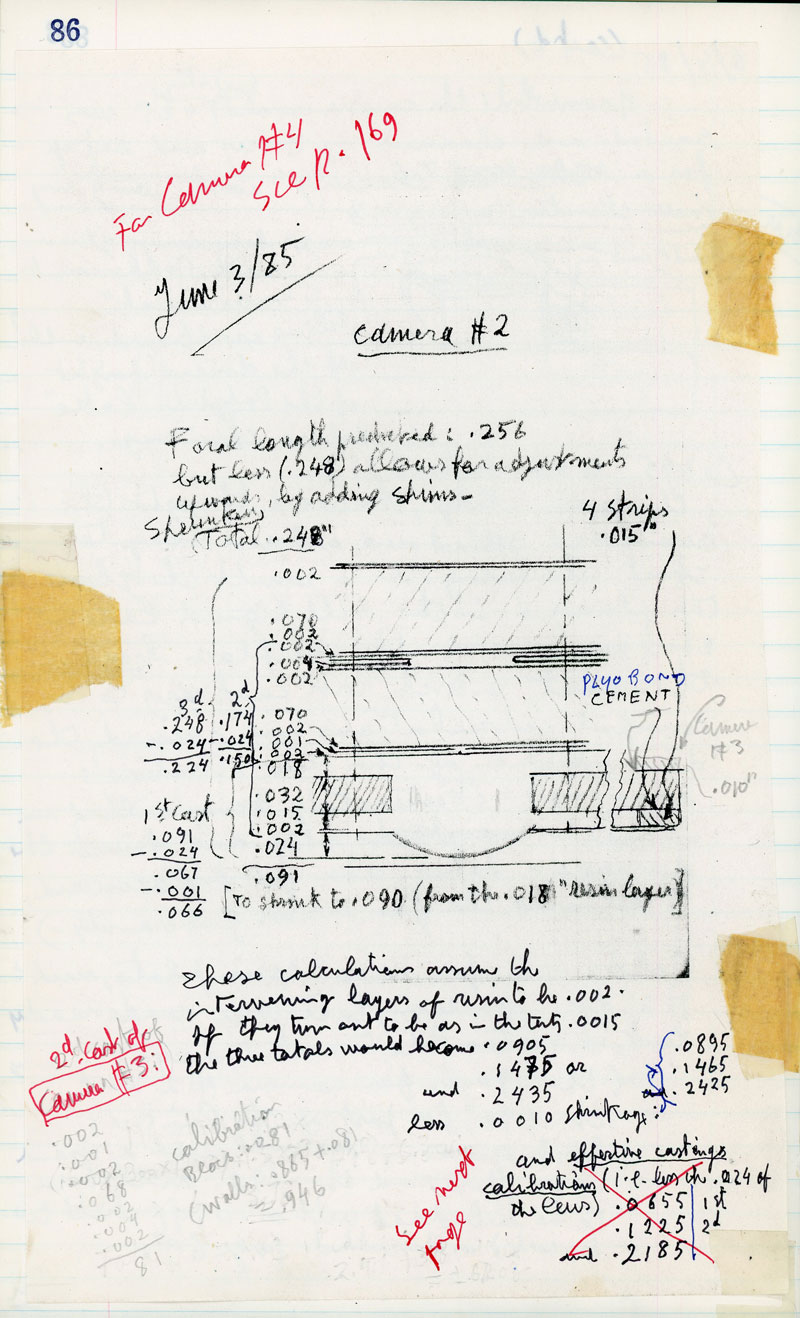 86
For Camera #4
See p. 169
June 3/85
Camera #2
Focal length predicted : .256
but less (.248) allows for adjustments
upwards, by adding shims -
(Total .248"
4 strips
.015"
.002
.070
.002
.002
.004
.002
PLYOBOND
CEMENT
3d.
.248
-.024
.224
2d.
.174
.024
.150
.070
.002
.001
.002
.018
.032
.015
.002
.024
.091
Camera
#3
.010"
1st Cast
.091
-.024
.067
-.001
.066
[To shrink to .090 (from the .018" resin layer)]
These calculations assume the
intervening layers of resin to be .002.
If they turn out to be as in the tests .0015
the three totals would become .0905
.1475 or
and .2435
less .0010 shrinkage:
.0895
.1465
and .2425
2d. Cast of
Camera #3:
.002
.001
.002
.068
.002
.004
.002
81
calibration
Blocs: .081
(walls: .865 + .081
= .946
See next
page
and effective castings
calibrations (i.e. less the .024 of
the lens) .0655 1st
.1225 2d
and .2185